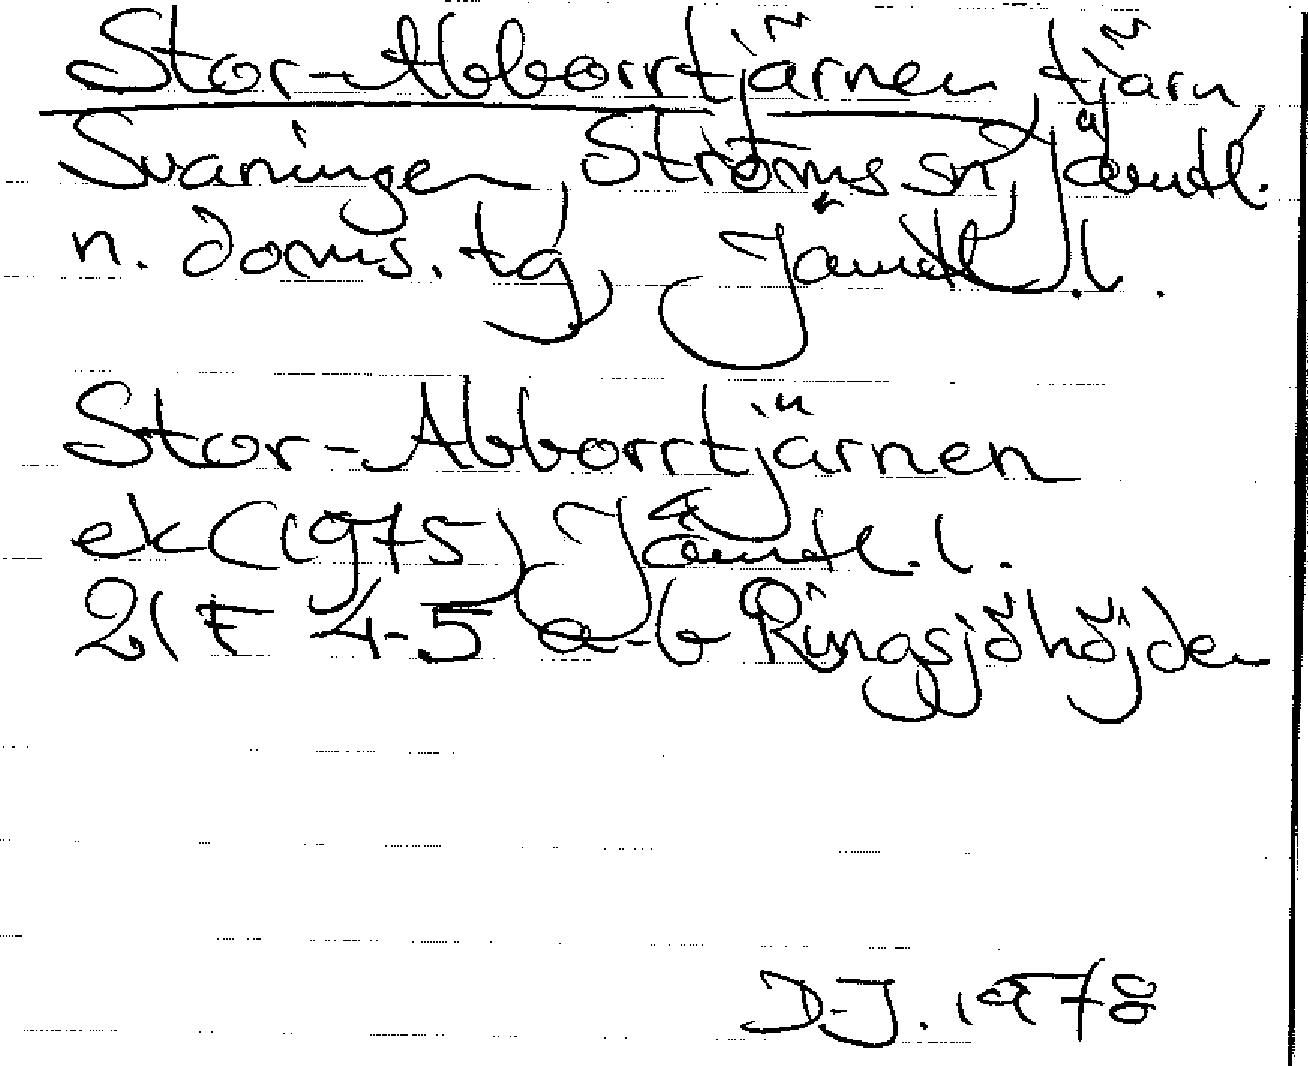 Stor-Abborrtjärnen tjärn
Svaningen, Ströms sn, Jämtl.
n. doms. tg, Jämtl.l.
Stor-Abborrtjärnen
ek (1975) Jämtl.l.
21 F 4-5 a-b Ringsjöhöjden
D-J. 1978